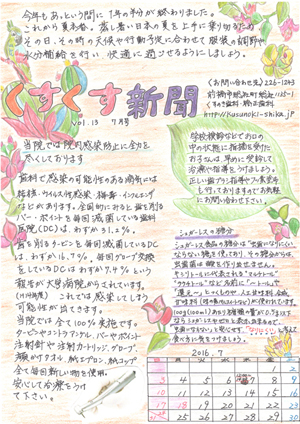 今年もあっという間に1年の半分が終わりました。
これから夏本番。蒸し暑い日本の夏を上手に乗り切るため
その日、その時の天候や行動予定に合わせて服装の調節や
水分補給を行い 快適に過ごせるようにしましょう。
くすくす新聞
vol.13 7月号
《お問い合わせ先》226-1243
前橋市
くすのき歯科・矯正歯科
http://kusunoki-shika.jp
当院では院内感染防止に全力を
尽くしております
歯科で感染の可能性のある病気には
梅毒・ウイルス性感染・麻疹・インフルエンザ
などがあります。全国的にみると歯を削る
バー・ポイントを毎回滅菌している歯科
医院(DC)は、わずか31.2%。
歯を削るタービンを毎回滅菌しているDC
は、わずか16.7%、毎回グローブ交換
をしているDCはわずか7.9%という
報告が大学病院からされています。
これでは感染してしまう
可能性が出てきます。
当院では全て100%実施です。
タービンやコントラアングル、バーやポイント
注射針や注射カートリッジ、グローブ、
顔ふきタオル、紙エプロン、紙コップ
全て毎回新しい物を使用。
安心して治療をうけ
て下さい。
学校検診などでお口の
中の状態に指摘を受けた
お子さんは、早めに受診して
治療や指導をうけましょう。
正しい歯ブラシ指導やフッ素塗布
も行っておりますのでお気軽
にお問い合わせ下さい。
シュガーレスの糖分
シュガーレス食品の糖分は“虫歯になりにくい
ならない糖を使っており、その糖分からは、
虫歯菌は酸を作り出せません。
キシリトールに代表される“マルチトール”
“ラクチトール”など名前に「~トール」や
「還元~」とつくものや、人工甘味料、合成
甘味料
100g(100ml)あたりに糖類の量が0.5g以下
なら「シュガーレスやゼロ」と表示出来るので、
食べ方に気をつけましょう。
2016.7
1 2
3 4 5 6 7 8 9
10 11 12 13 14 15 16
17 18 19 20 21 22 23
25 26 27 28 29 30